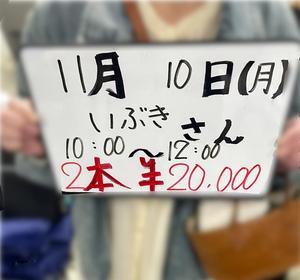 11月 10日(月)
いぶきさん
10:00～12:00
2本 ¥20.000